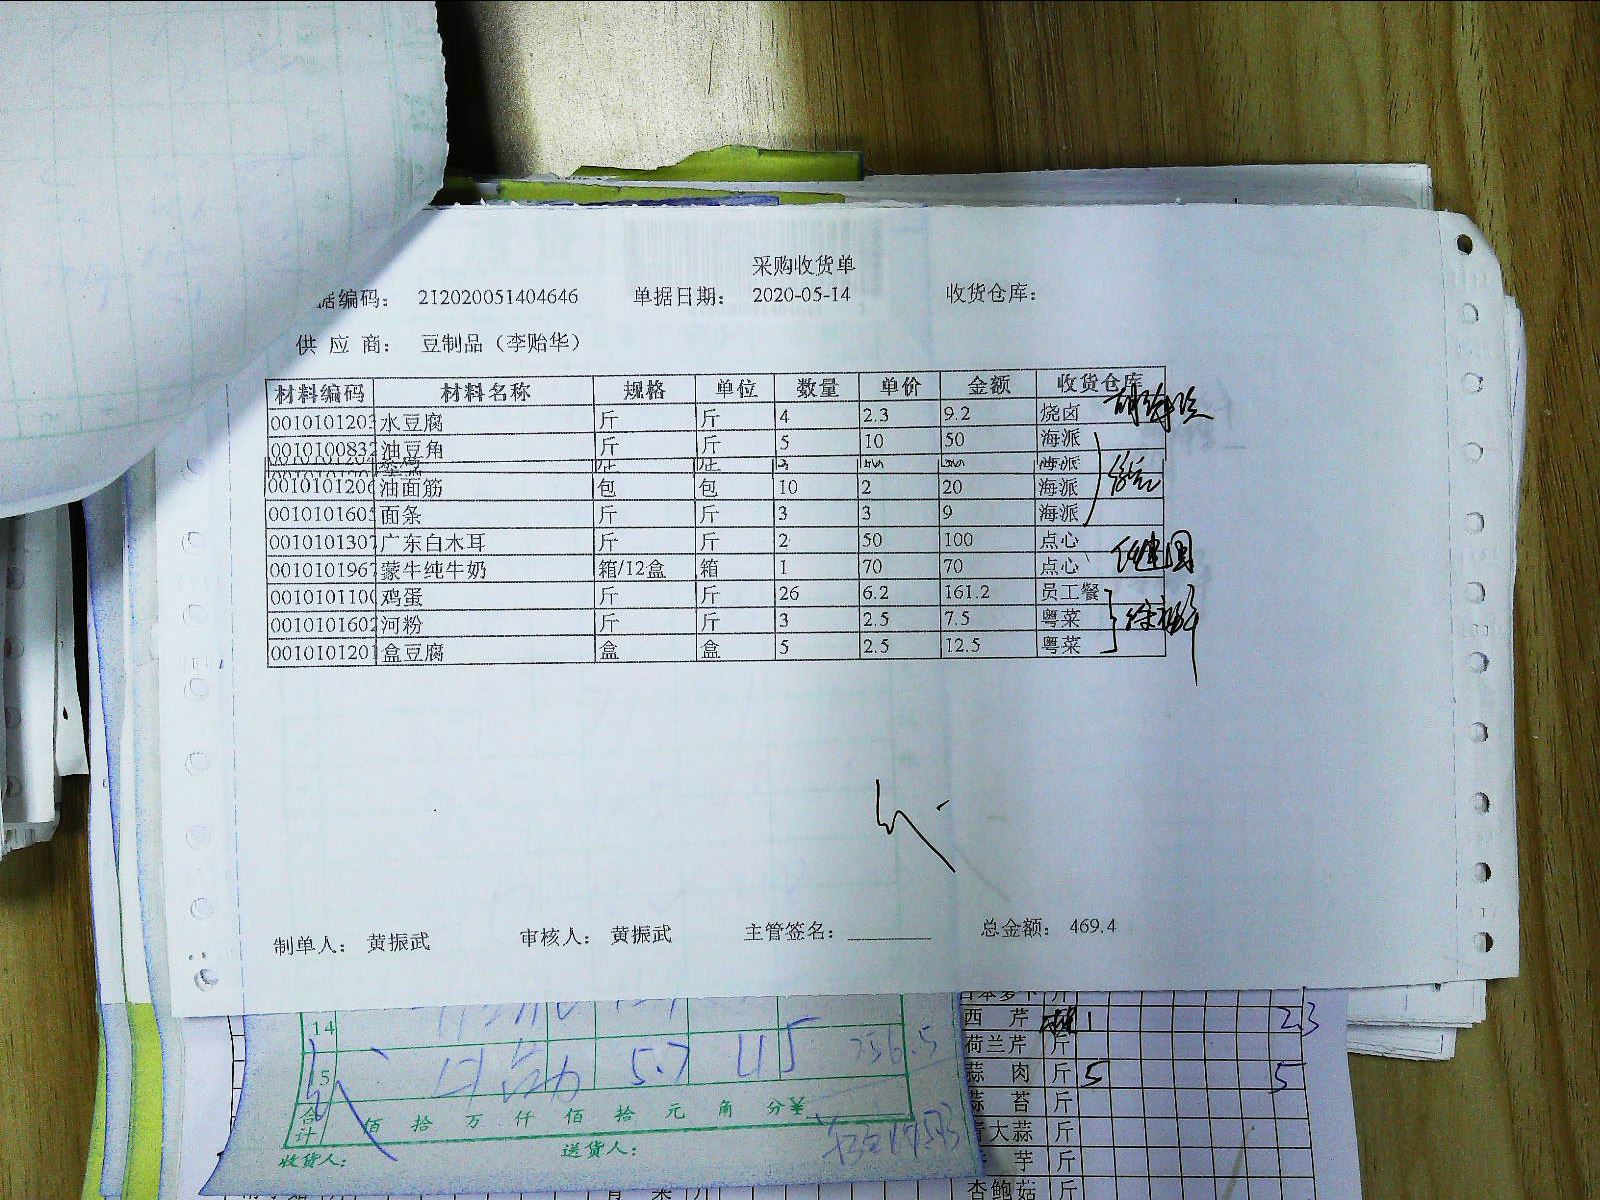 采购收货单
据编码： 212020051404646 单据日期： 2020-05-14 收货仓库：
供 应 商： 豆制品（李贻华）
材料编码 材料名称 规格 单位 数量 单价 金额 收货仓库
0010101203 水豆腐 斤 斤 4 2.3 9.2 烧卤
0010100832 油豆角 斤 斤 5 10 50 海派
海派
0010101206 油面筋 包 包 10 2 20 海派
0010101605 面条 斤 斤 3 3 9 海派
0010101307 广东白木耳 斤 斤 2 50 100 点心
0010101967 蒙牛纯牛奶 箱/12盒 箱 1 70 70 点心
0010101100 鸡蛋 斤 斤 26 6.2 161.2 员工餐
0010101602 河粉 斤 斤 3 2.5 7.5 粤菜
0010101201 盒豆腐 盒 盒 5 2.5 12.5 粤菜
制单人： 黄振武 审核人： 黄振武 主管签名： 总金额： 469.4
14
15 5.7 45 256.5
合计 佰 拾 万 仟 佰 拾 元 角 分¥
收货人： 送货人：
西 芹 1 2.3
荷兰芹 斤
蒜 肉 斤 5 5
蒜 苔 斤
青大蒜 斤
芋 斤
杏鲍菇 斤